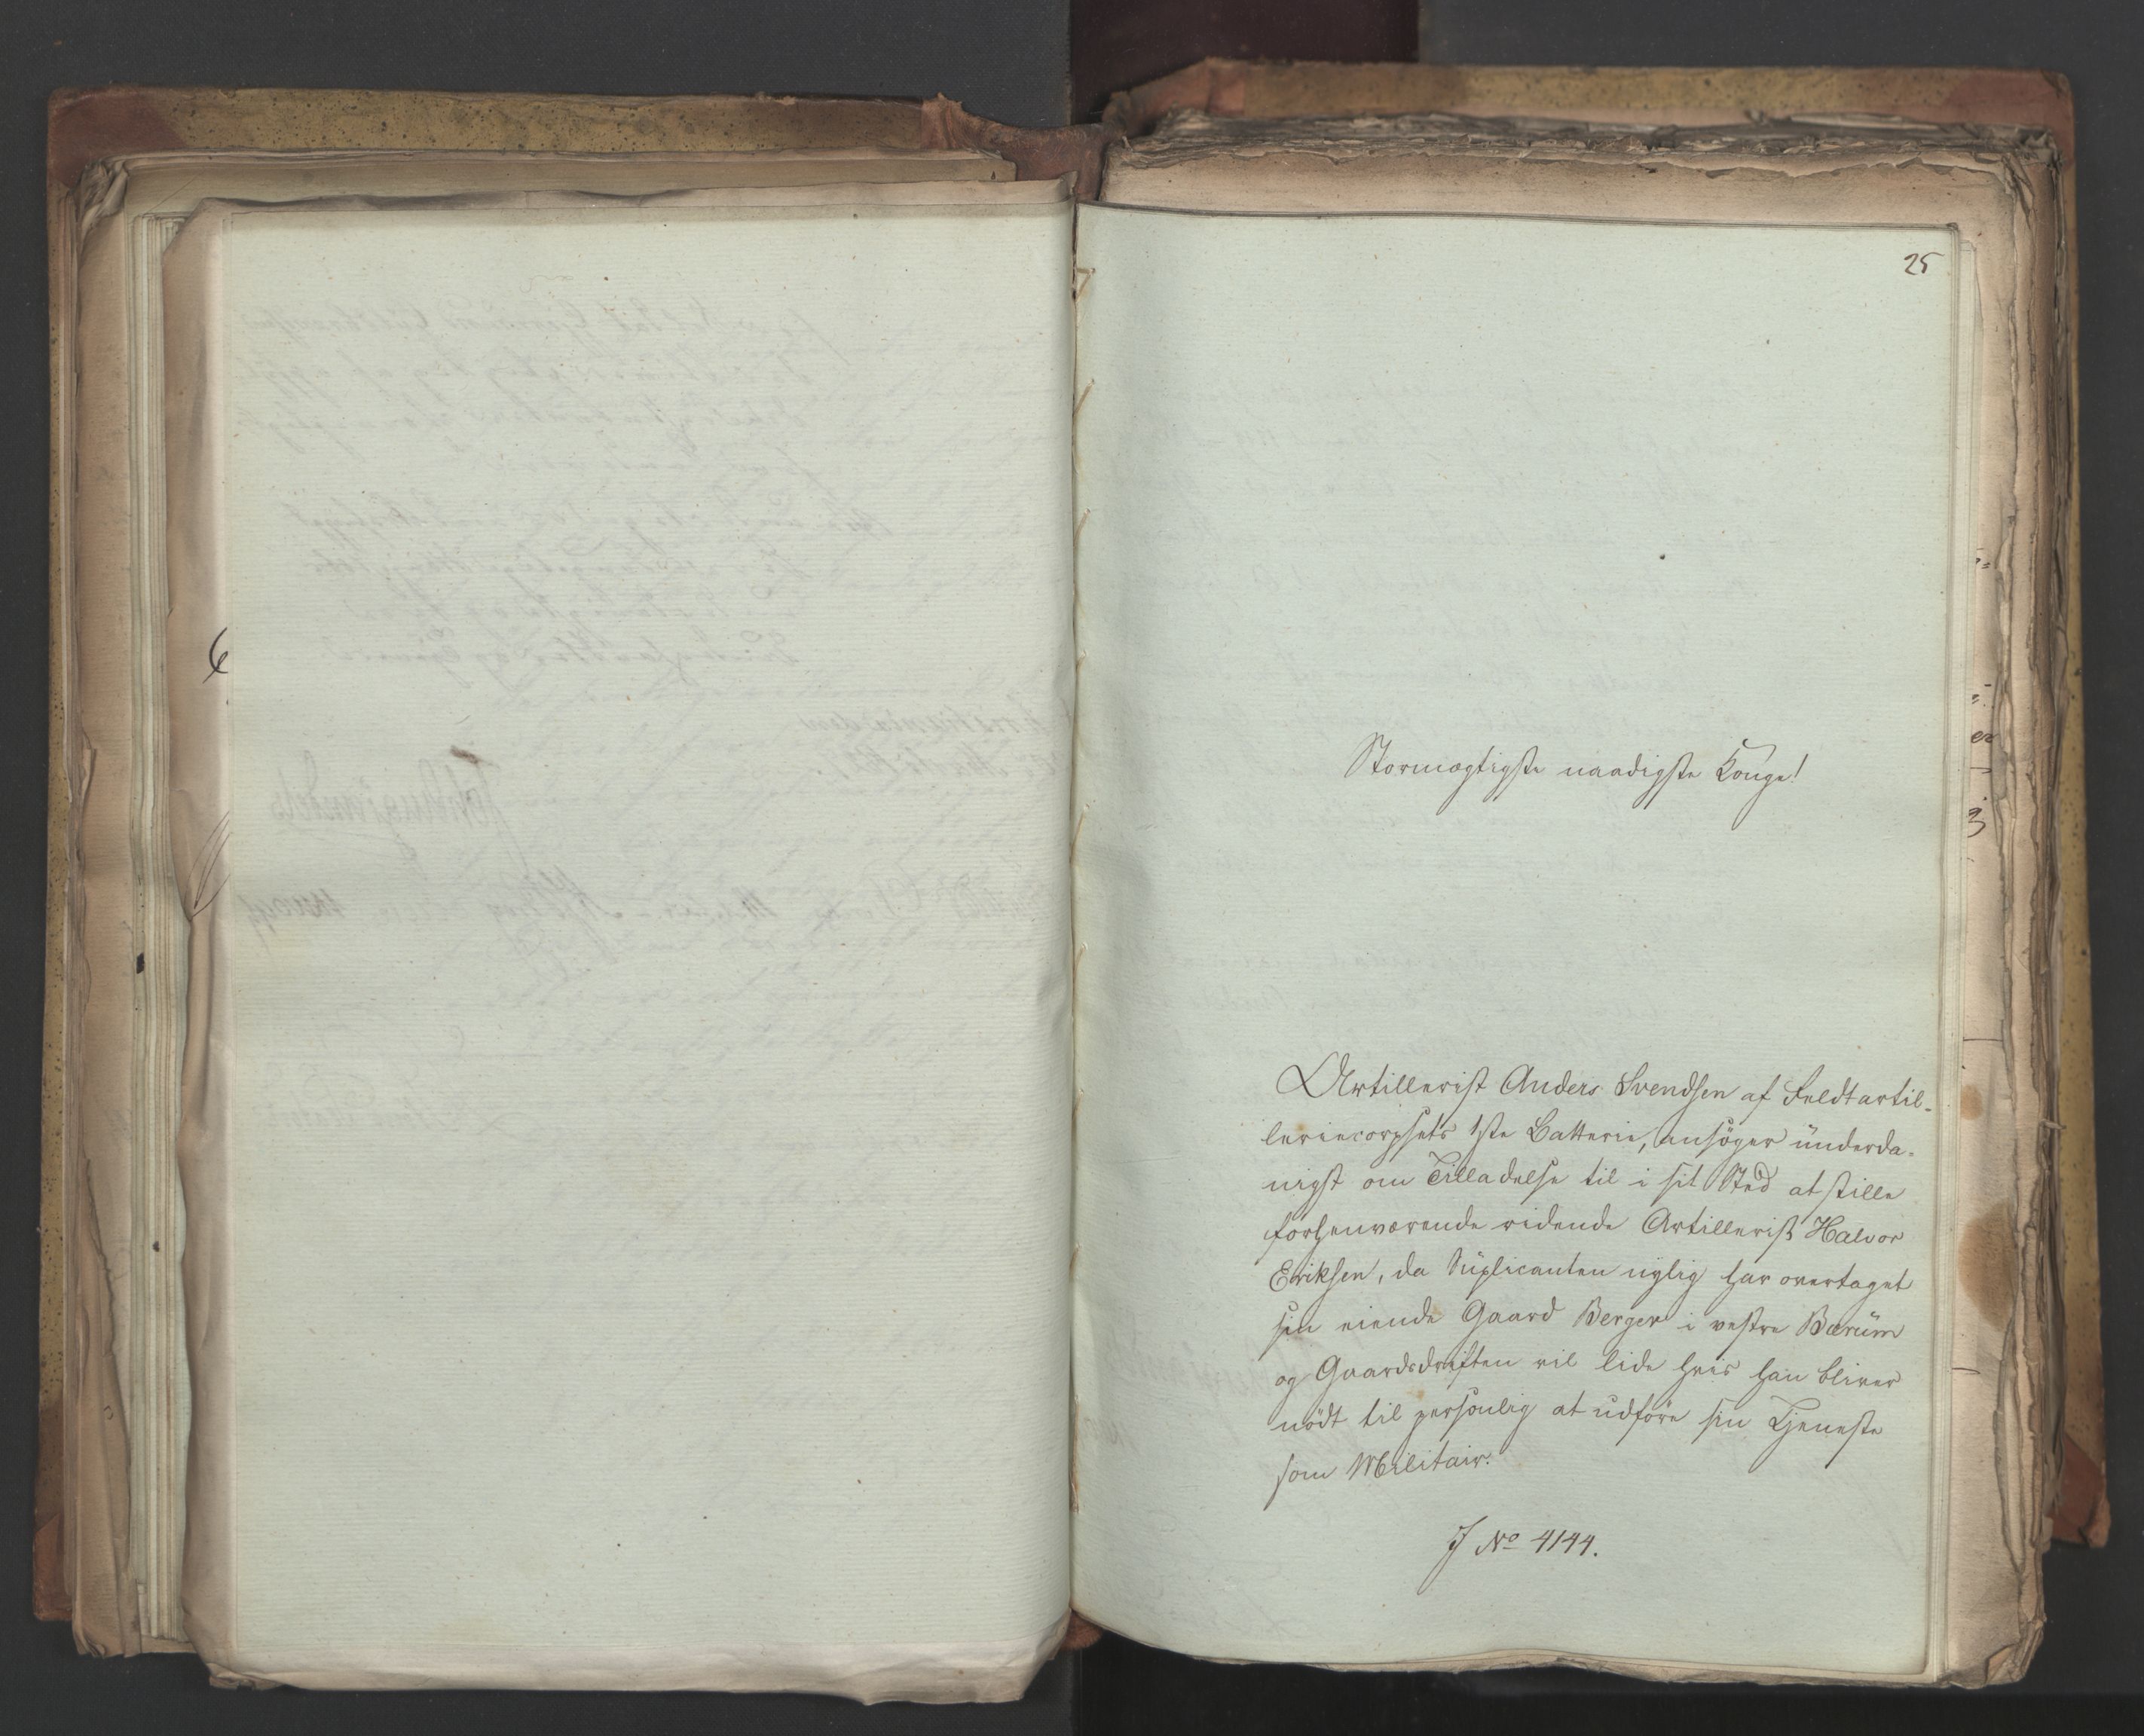 25
Stormægtigste naadigste Konge!
Artillerist Anders Svendsen af Feldtartil-
leriecorpsets 1ste Batterie, ansøger ünderda-
nigst om Tilladelse til i sit Sted at stille
forhenværende ridende Artillerist Halvor
Eriksen, da Süplicanten nylig har overtaget
sin eiende Gaard Berger i vestre Bærüm
og Gaardsdriften vil lide hvis han bliver
nödt til personlig at udföre sin Tjeneste
som Militair.
J No 4144.